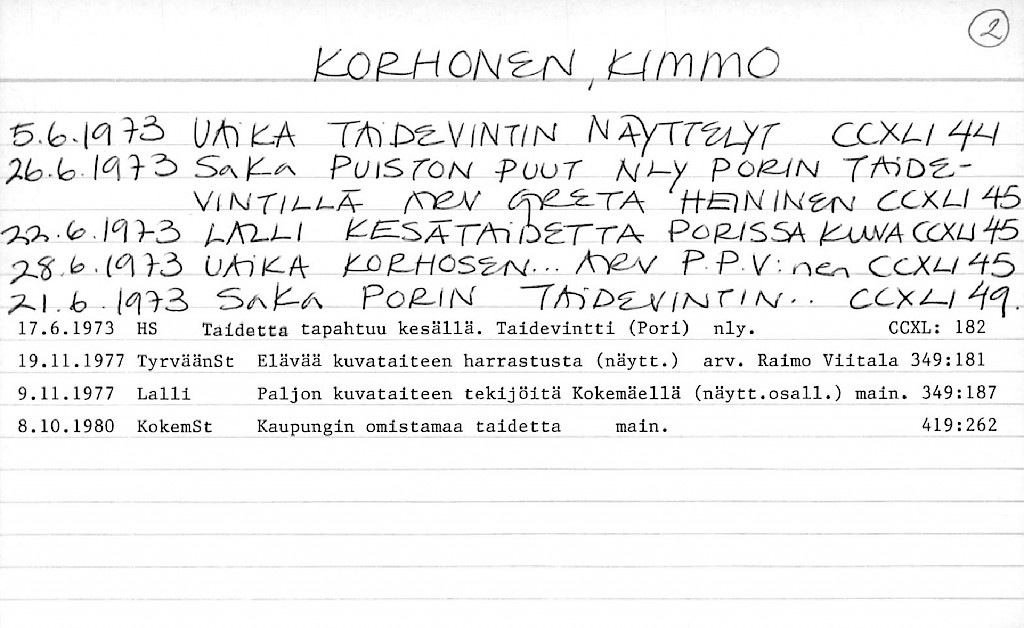 2
KORHONEN, KIMMO
5.6.1973 UAiKA TAiDEVINTIN NÄYTTELYT CCXLI 44
26.6.1973 SaKa PUISTON PUUT NLY PORIN TAiDE-
VINTILLÄ ARV GRETA HEININEN CCXLI 45
22.6.1973 LALLI KESÄTAiDETTA PORISSA KUVA CCXLI 45
28.6.1973 UAiKA KORHOSEN... ARV P.P.V:nen CCXLI 45
21.6.1973 SaKa PORIN TAiDEVINTIN.. CCXLI 49.
17.6.1973 HS Taidetta tapahtuu kesällä. Taidevintti (Pori) nly. CCXL: 182
19.11.1977 TyrväänSt Elävää kuvataiteen harrastusta (näytt.) arv. Raimo Viitala 349:181
9.11.1977 Lalli Paljon kuvataiteen tekijöitä Kokemäellä (näytt.osall.) main. 349:187
8.10.1980 KokemSt Kaupungin omistamaa taidetta main. 419:262